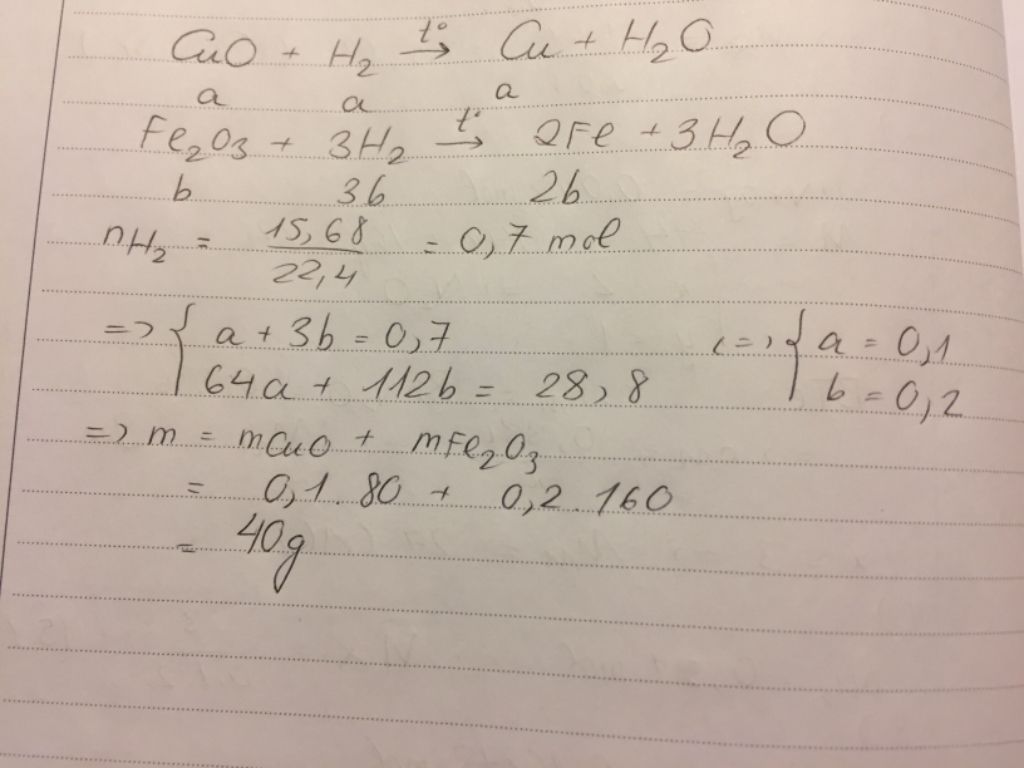 CuO + H₂ →(t°) Cu + H₂O
a a a
Fe₂O₃ + 3H₂ →(t°) 2Fe + 3H₂O
b 3b 2b
nH₂ = 15,68 / 22,4 = 0,7 mol
=> { a + 3b = 0,7 <=> { a = 0,1
64a + 112b = 28,8 b = 0,2
=> m = mCuO + mFe₂O₃
= 0,1.80 + 0,2.160
= 40g